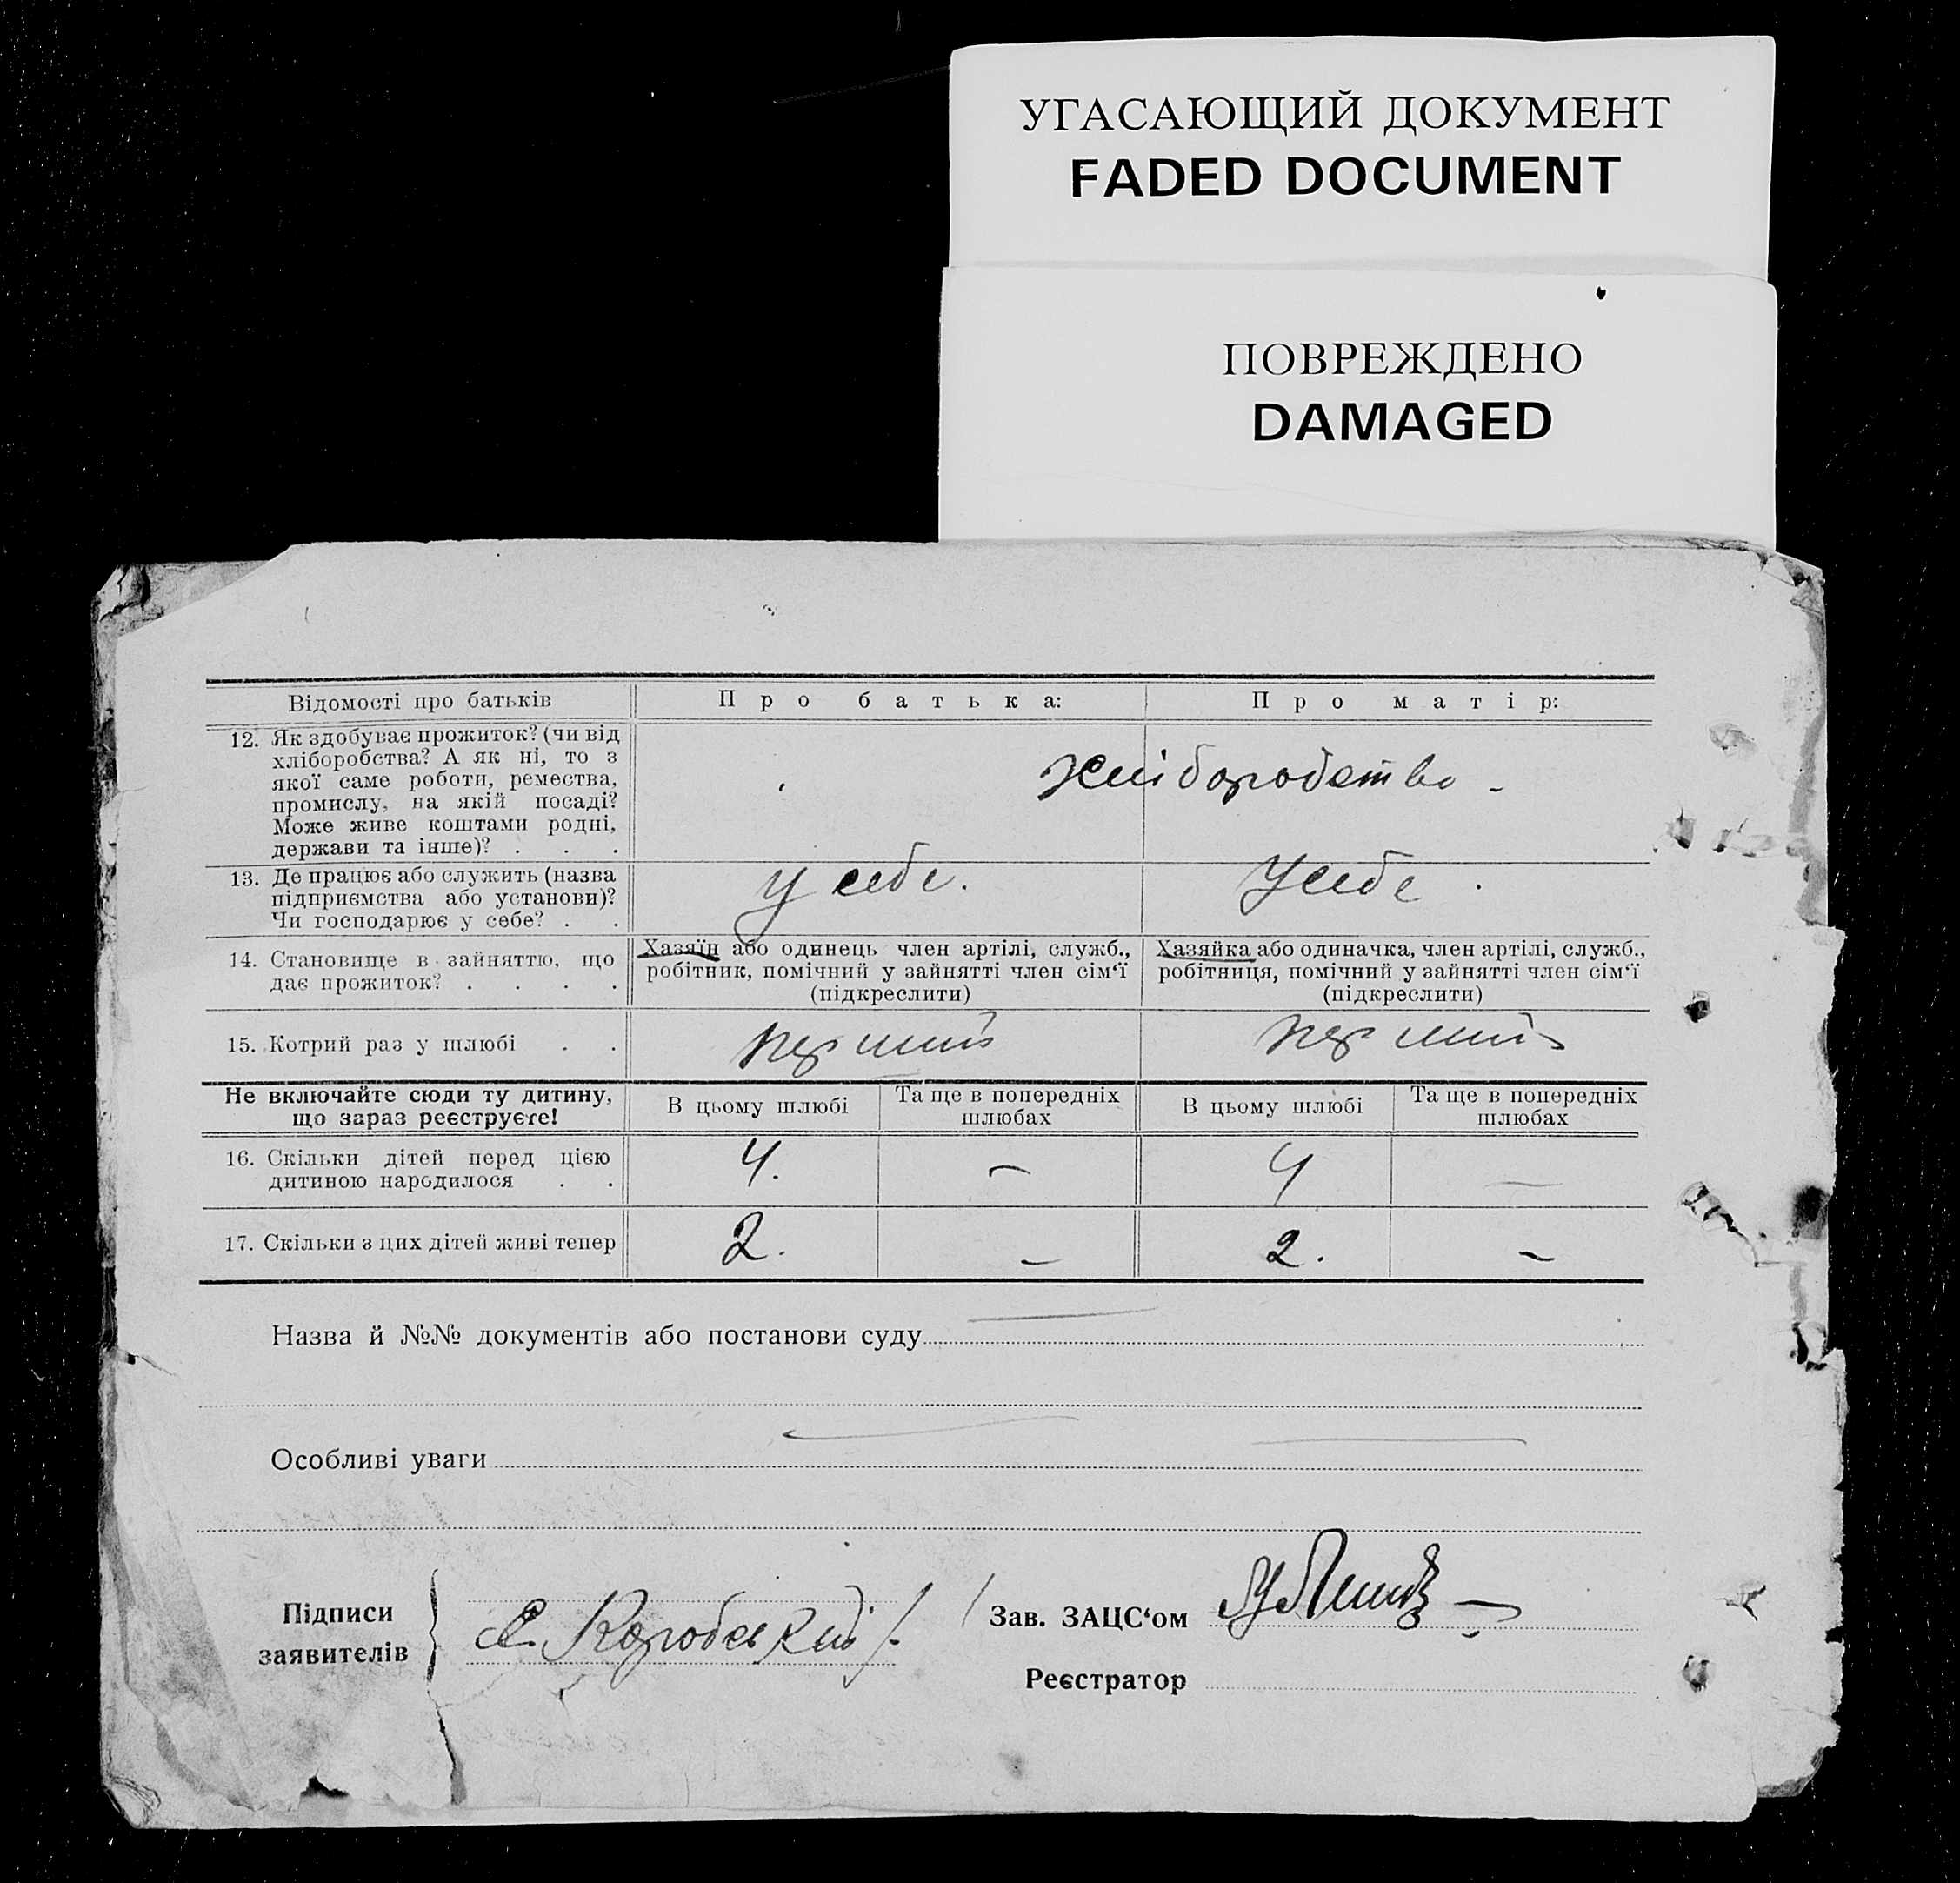 УГАСАЮЩИЙ ДОКУМЕНТ
FADED DOCUMENT
ПОВРЕЖДЕНО
DAMAGED
Відомості про батьків
Про батька:
Про матір:
12. Як здобуває прожиток? (чи від
хліборобства? А як ні, то з
якої саме роботи, ремества,
промислу, на якій посаді?
Може живе коштами родні,
держави та інше)? . . .
хліборобство -
13. Де працює або служить (назва
підприємства або установи)?
Чи господарює у себе? . .
у себе.
У себе .
14. Становище в зайняттю, що
дає прожиток? . . . .
Хазяїн або одинець член артілі, служб.,
робітник, помічний у зайнятті член сім‘ї
(підкреслити)
Хазяйка або одиначка, член артілі, служб.,
робітниця, помічний у зайнятті член сім‘ї
(підкреслити)
15. Котрий раз у шлюбі . .
перший
перший
Не включайте сюди ту дитину,
що зараз реєструєте!
В цьому шлюбі
Та ще в попередніх
шлюбах
В цьому шлюбі
Та ще в попередніх
шлюбах
16. Скільки дітей перед цією
дитиною народилося . .
4.
—
4
—
17. Скільки з цих дітей живі тепер
2.
—
2.
—
Назва й №№ документів або постанови суду
Особливі уваги
Підписи
заявителів
Є. Коробський
Зав. ЗАЦС‘ом
Реєстратор